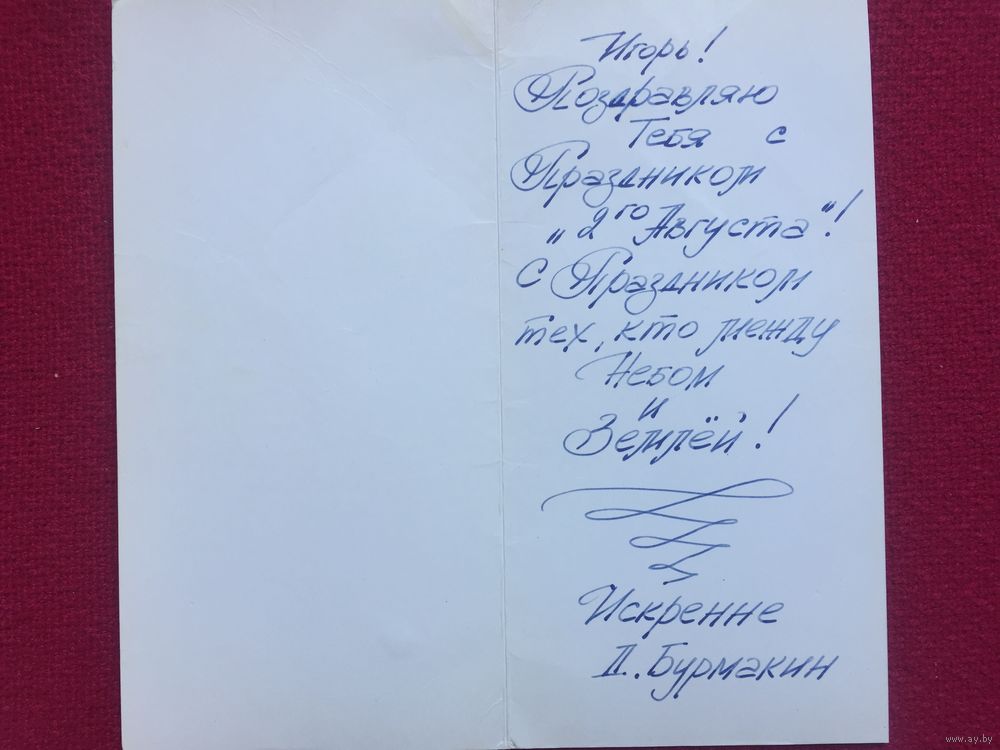 Игорь!
Поздравляю
Тебя с
Праздником
„2го Августа“!
С Праздником
тех, кто между
Небом
и
Землёй!
Искренне
Д. Бурмакин
www.ay.by